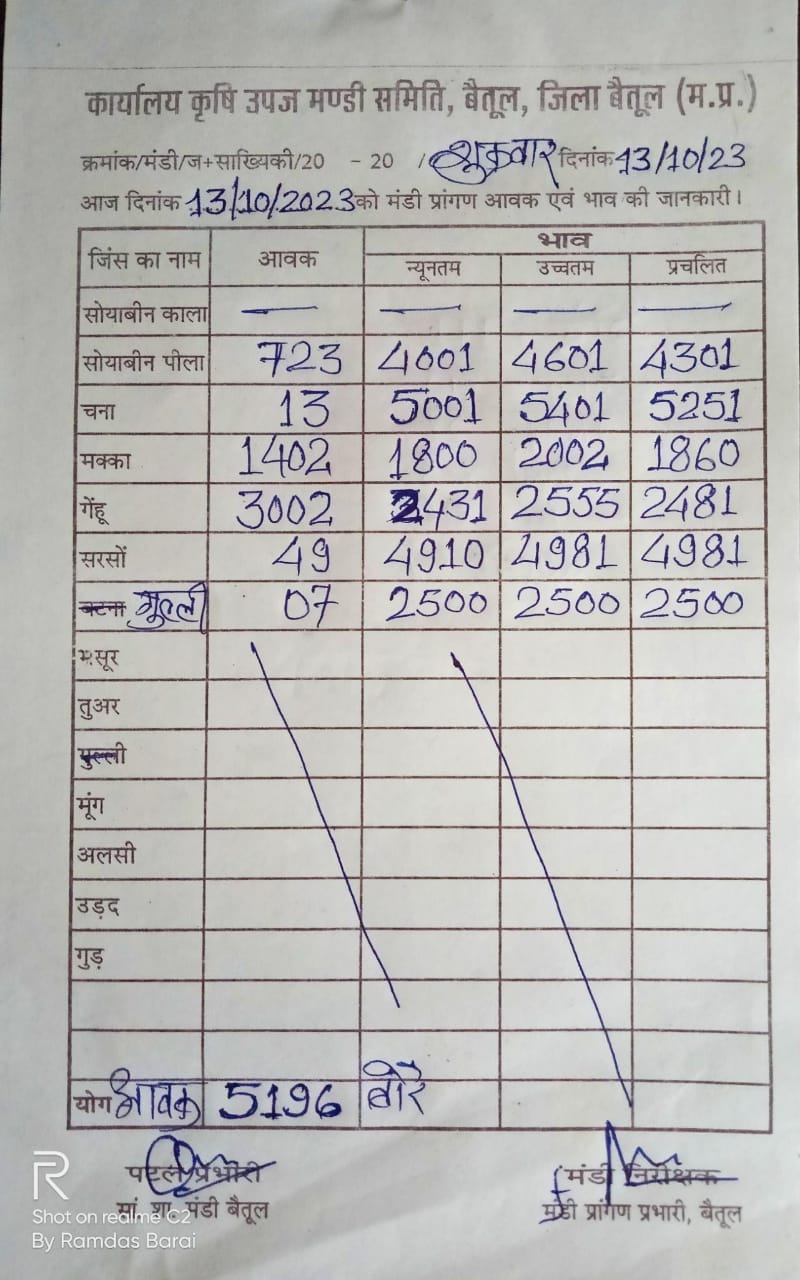 कार्यालय कृषि उपज मण्डी समिति, बैतूल, जिला बैतूल (म.प्र.)
क्रमांक/मंडी/ज+साख्यिकी/20 - 20 / शुक्रवार दिनांक 13/10/23
आज दिनांक 13/10/2023 को मंडी प्रांगण आवक एवं भाव की जानकारी।
जिंस का नाम आवक भाव
न्यूनतम उच्चतम प्रचलित
सोयाबीन काला — — — —
सोयाबीन पीला 723 4001 4601 4301
चना 13 5001 5401 5251
मक्का 1402 1800 2002 1860
गेंहू 3002 2431 2555 2481
सरसों 49 4910 4981 4981
गुल्ली 07 2500 2500 2500
मसूर
तुअर
गुल्ली
मूंग
अलसी
उड़द
गुड़
योग आवक 5196 बोरे
प्रभारी मंडी निरीक्षक
मां. शा. मंडी बैतूल मंडी प्रांगण प्रभारी, बैतूल
Shot on realme C2
By Ramdas Barai